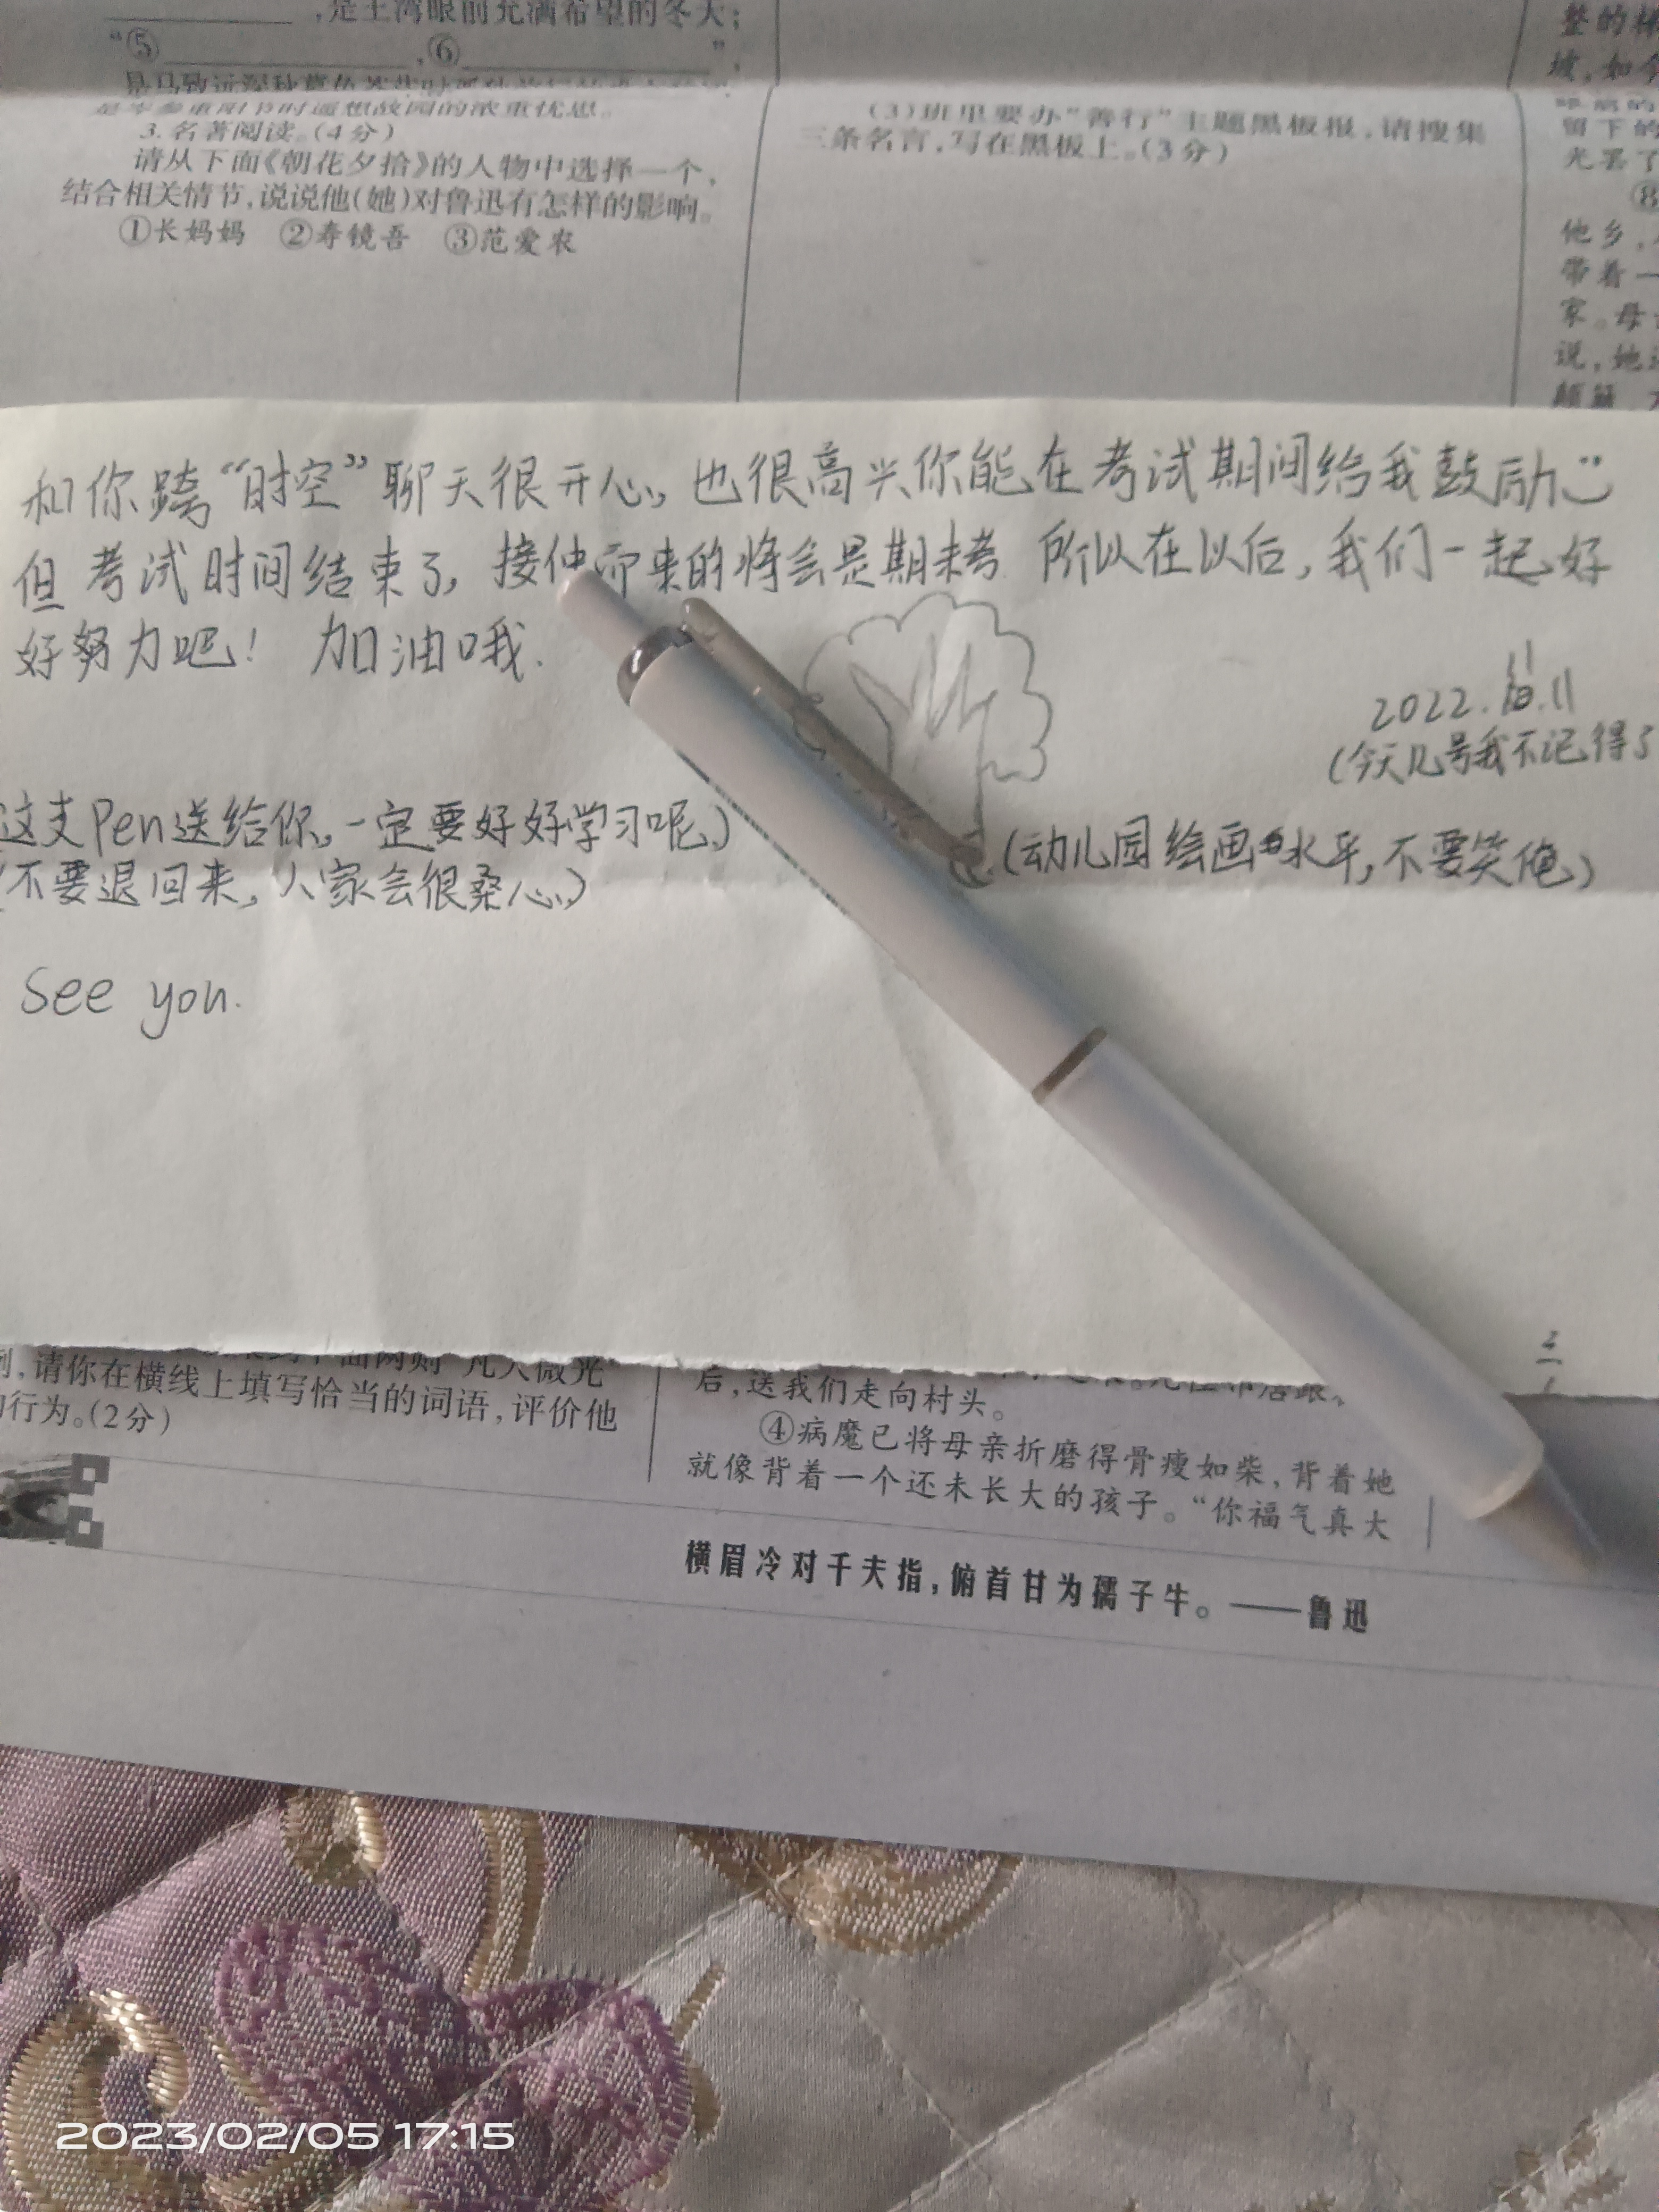 ,是王湾眼前充满希望的冬天;
“⑤ ,⑥ ”,
3.名著阅读。(4分)
请从下面《朝花夕拾》的人物中选择一个,
结合相关情节,说说他(她)对鲁迅有怎样的影响。
①长妈妈 ②寿镜吾 ③范爱农
(3)班里要办“善行”主题黑板报,请搜集
三条名言,写在黑板上。(3分)
整的
坡,如今
留下的
光丢了
⑧
他乡,
带着一
家。母
说,她
和你跨“时空”聊天很开心,也很高兴你能在考试期间给我鼓励
但考试时间结束了,接 而来的将会是期末考 所以在以后,我们一起好
好努力吧! 加油哦.
2022. .11
(今天几号我不记得了
这支Pen送给你,一定要好好学习呢)
(不要退回来,人家会很桑心)
(幼儿园绘画水平,不要笑俺)
See you.
,请你在横线上填写恰当的词语,评价他
行为。(2分)
后,送我们走向村头。
④病魔已将母亲折磨得骨瘦如柴,背着她
就像背着一个还未长大的孩子。“你福气真大
横眉冷对千夫指,俯首甘为孺子牛。——鲁迅
2023/02/05 17:15